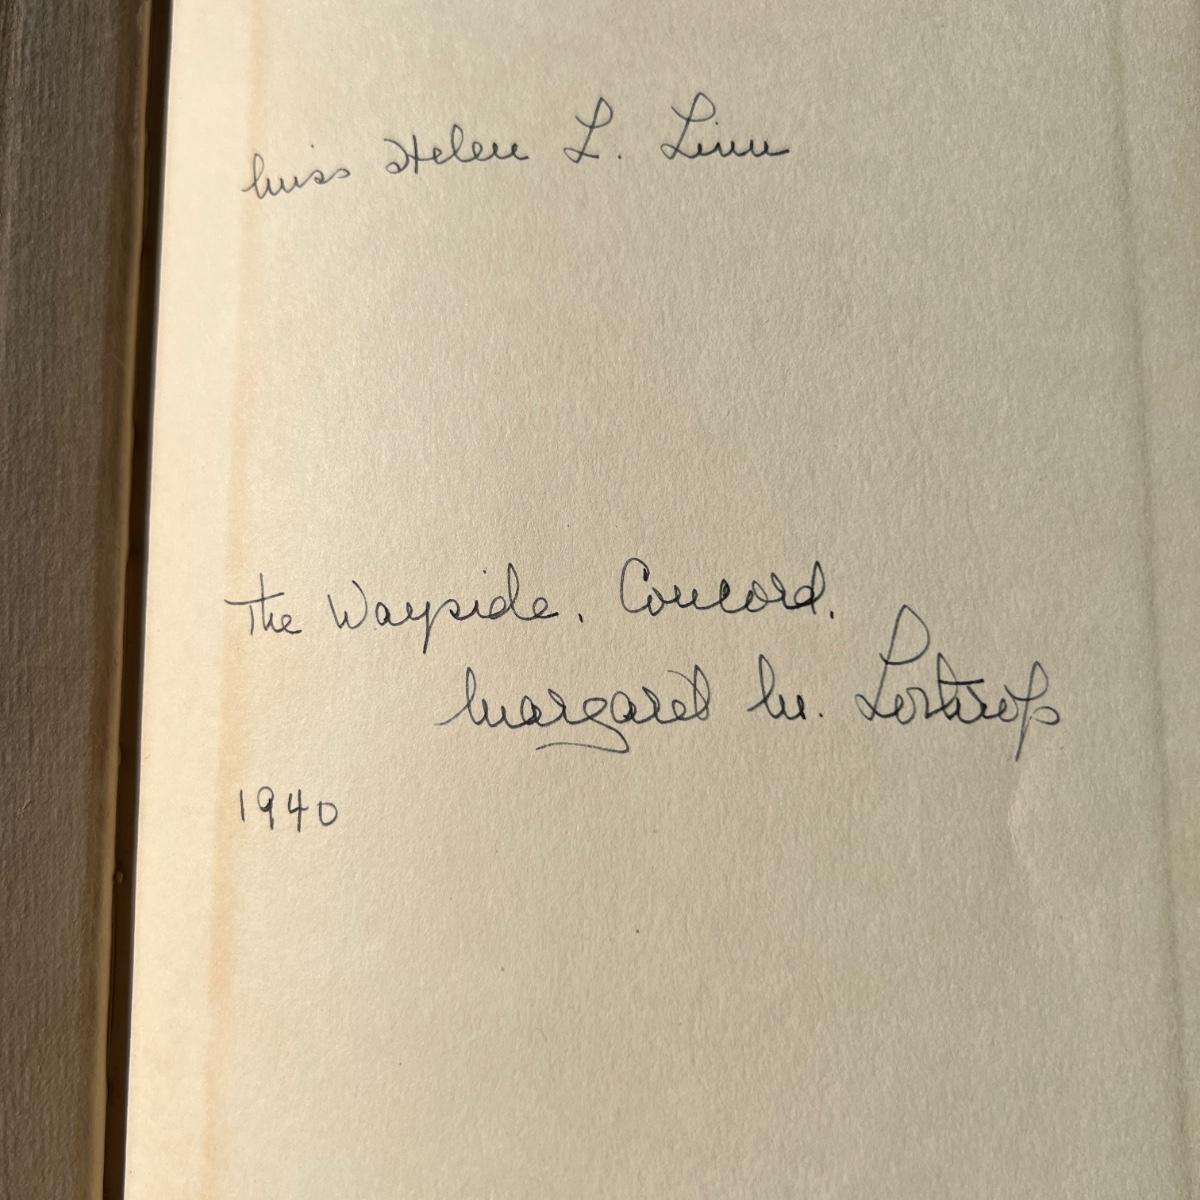 Miss Helen L. Linn
The Wayside. Concord.
Margaret M. Lothrop
1940